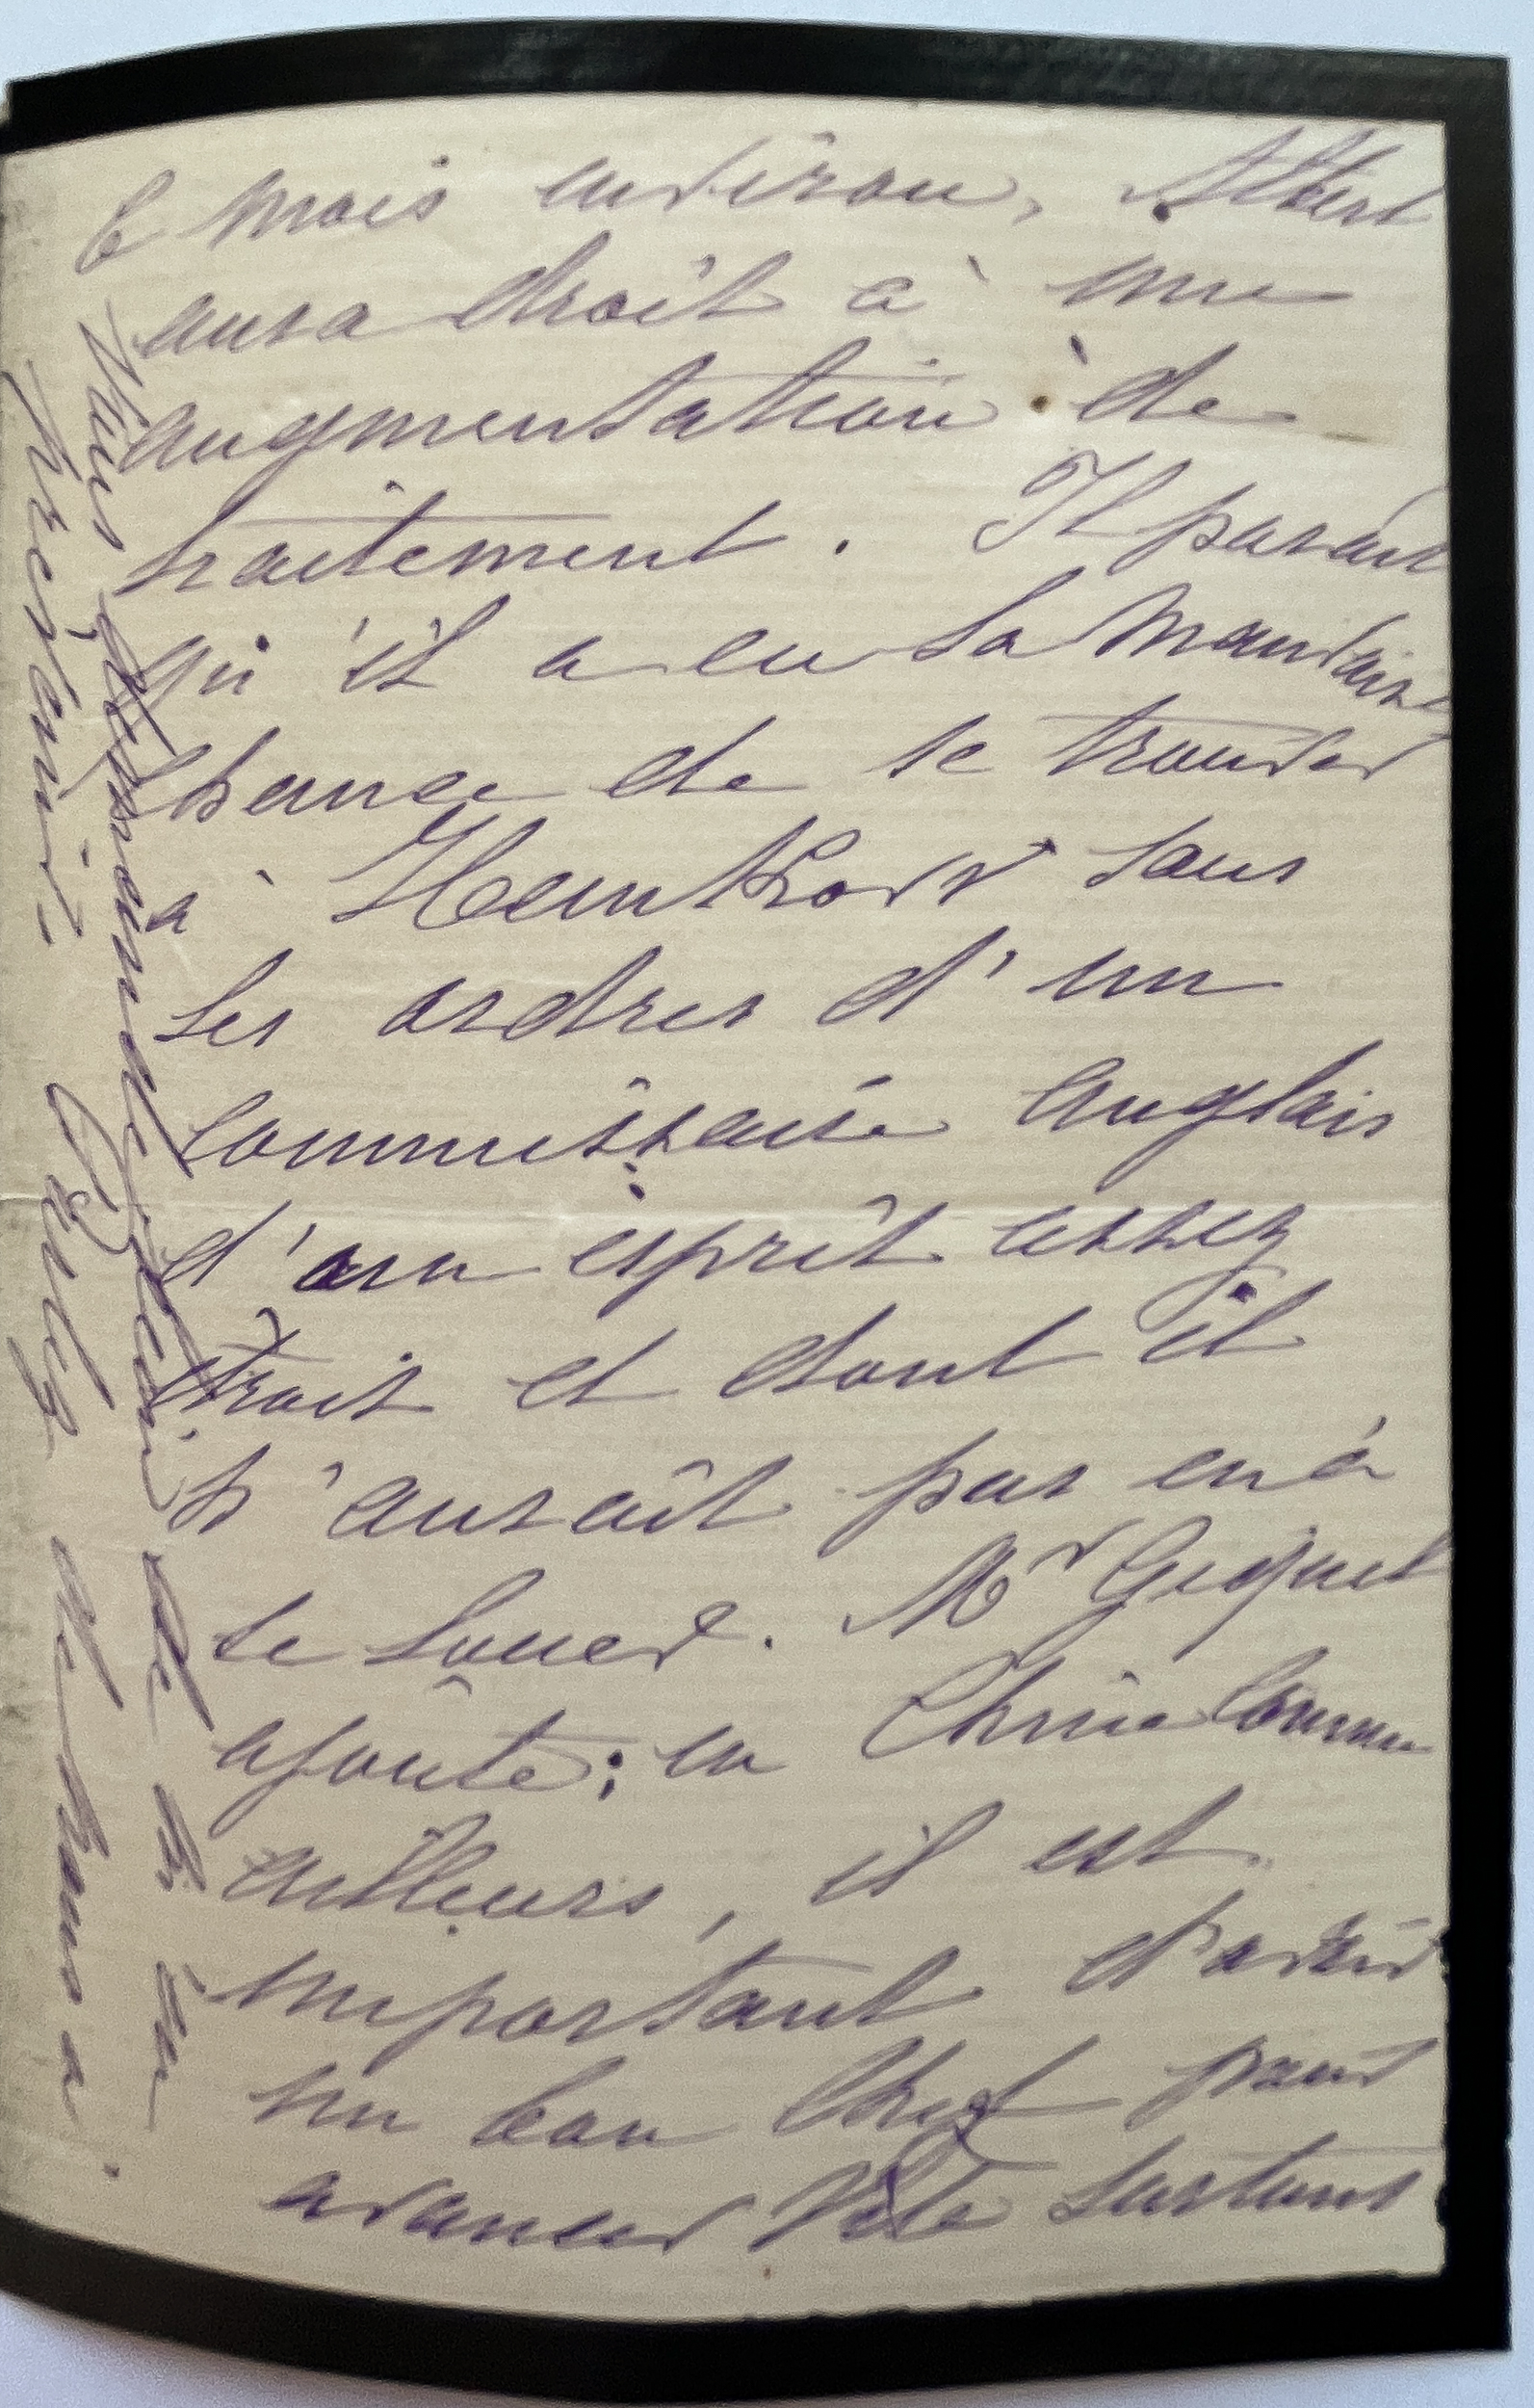 6 mois environ, Albert
aura droit à une
augmentation de
traitement. Il parait
qu'il a eu la mauvaise
chance de se trouver
à sous
les ordres d'un
commissaire anglais
d'un esprit assez
étroit et dont il
n'aurait pas eu à
se louer. Mr
ajoute : en Chine comme
ailleurs, il est
important d'avoir
un bon chef pour
avancer vite surtout